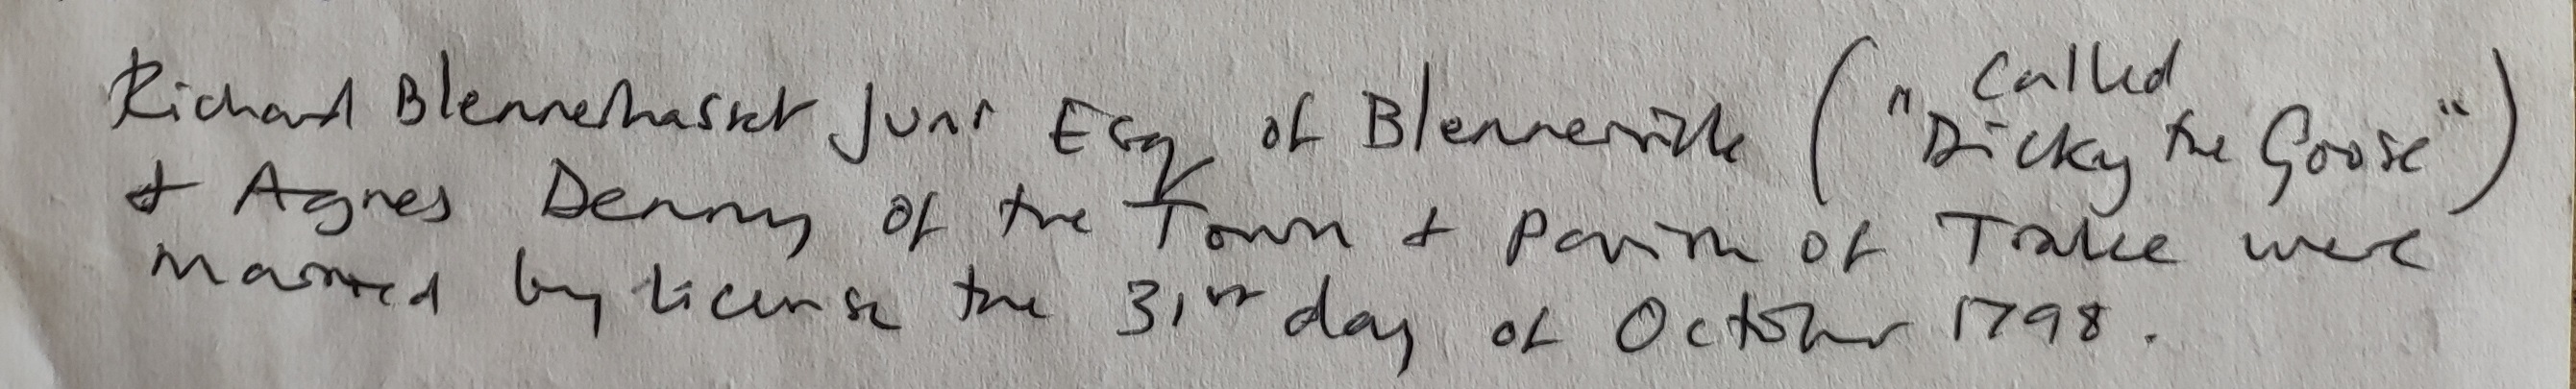 Richard Blennerhasset Junr Esq of Blennerville (called "Dicky the Goose")
+ Agnes Denny of the Town + Parish of Tralee were
married by license the 31st day of October 1798.